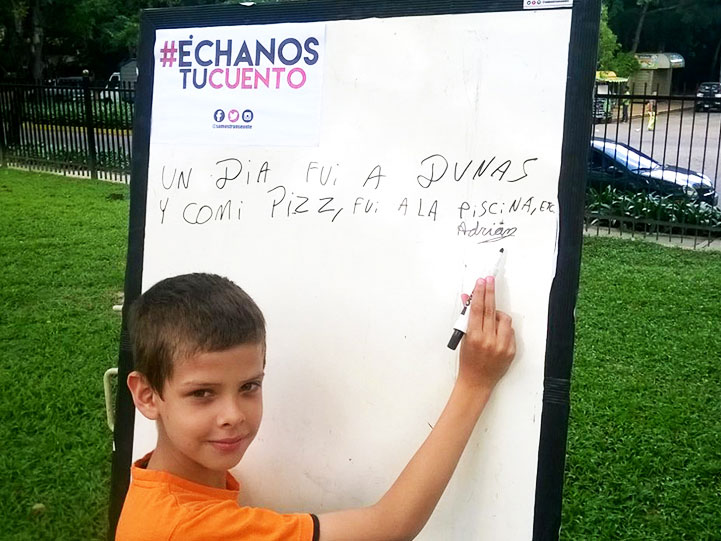 #ÉCHANOS
TUCUENTO
UN DiA FUi A DUNAS
Y COMi PiZZ, FUi A LA PiSCiNA, ETC
Adrián